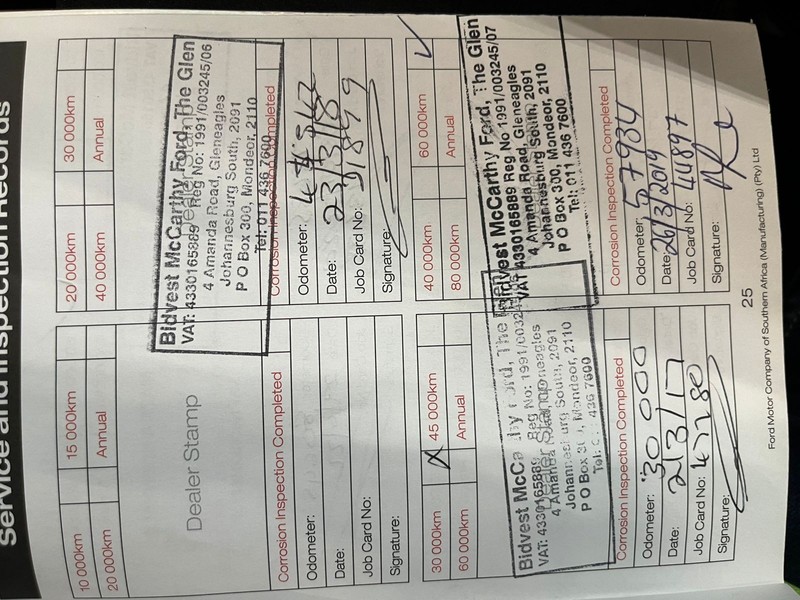 Service and Inspection Records
10 000km 15 000km
20 000km Annual
Dealer Stamp
Corrosion Inspection Completed
Odometer:
Date:
Job Card No:
Signature:
20 000km 30 000km
40 000km Annual
Bidvest McCarthy Ford, The Glen
VAT: 4330165889 Reg No: 1991/003245/06
4 Amanda Road, Gleneagles
Johannesburg South, 2091
P O Box 300, Mondeor, 2110
Tel: 011 436 7600
Corrosion Inspection Completed
Odometer:
Date: 23/3/18
Job Card No:
Signature:
30 000km 45 000km
60 000km Annual
Dealer Stamp
Bidvest McCa by Ford, The
VAT: 4330165889 Reg No: 1991/0032
4 Amanda Road, Gleneagles
Johannesburg South, 2091
P O Box 300, Mondeor, 2110
Tel: 436 7600
Corrosion Inspection Completed
Odometer: 30 000
Date: 2/3/17
Job Card No: 47280
Signature:
40 000km 60 000km
80 000km Annual
Bidvest McCarthy Ford, The Glen
VAT 4330165889 Reg No 1991/003245/07
4 Amanda Road, Gleneagles
Johannesburg South, 2091
P O Box 300, Mondeor, 2110
Tel: 011 436 7600
Corrosion Inspection Completed
Odometer: 57934
Date: 26/3/2019
Job Card No: 44897
Signature:
25
Ford Motor Company of Southern Africa (Manufacturing) (Pty) Ltd